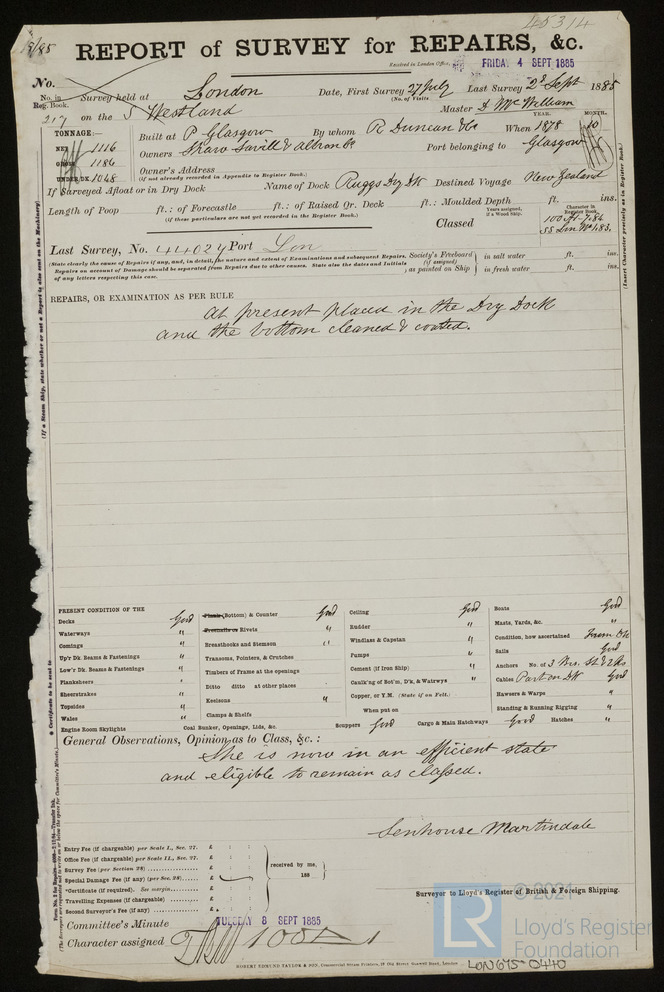 45314
REPORT of SURVEY for REPAIRS, &c.
Received in London Office, FRIDAY 4 SEPT 1885
No.
No. in Reg. Book. Survey held at London Date, First Survey 27 July Last Survey 2d Sept 1885
(No. of Visits)
217 on the S Westland Master D McWilliam
TONNAGE:— Built at P Glasgow By whom R Duncan & Co When 1878 10
YEAR. MONTH.
NET 1116 Owners Shaw Savill & Albion Co Port belonging to Glasgow
GROSS 1186 Owner's Address
(if not already recorded in Appendix to Register Book.)
UNDER DK. 1048
If Surveyed Afloat or in Dry Dock Name of Dock Ruggs Dy Dk Destined Voyage New Zealand
Length of Poop ft.: of Forecastle ft.: of Raised Qr. Deck ft.: Moulded Depth ft. ins.
(if these particulars are not yet recorded in the Register Book.)
Classed Years assigned, if a Wood Ship. Character in Register Book.
100 A1-7,84
SS Lon No 1,83,
Last Survey, No. 44024 Port Lon
(State clearly the cause of Repairs if any, and, in detail, the nature and extent of Examinations and subsequent Repairs.
Repairs on account of Damage should be separated from Repairs due to other causes. State also the dates and Initials
of any letters respecting this case.
Society's Freeboard (if assigned) as painted on Ship in salt water ft. ins.
in fresh water ft. ins.
REPAIRS, OR EXAMINATION AS PER RULE
at present placed in the Dry Dock
and the bottom cleaned & coated.
PRESENT CONDITION OF THE
Decks Good
Waterways "
Comings "
Up'r Dk. Beams & Fastenings "
Low'r Dk. Beams & Fastenings "
Planksheers "
Sheerstrakes "
Topsides "
Wales "
Engine Room Skylights
Plank (Bottom) & Counter Good
Treenails or Rivets "
Breasthooks and Stemson "
Transoms, Pointers, & Crutches
Timbers of Frame at the openings
Ditto ditto at other places
Keelsons "
Clamps & Shelfs
Coal Bunker, Openings, Lids, &c.
Ceiling Good
Rudder "
Windlass & Capstan "
Pumps "
Cement (if Iron Ship) "
Caulk'ng of Bot'm, D'k, & Watrwys "
Copper, or Y.M. (State if on Felt.)
When put on
Scuppers Good Cargo & Main Hatchways Good Hatches "
Boats Good
Masts, Yards, &c. "
Condition, how ascertained From Dk
Sails Good
Anchors No. of 3 Brs. St. & 2 Ks
Cables Part on Dk Good
Hawsers & Warps "
Standing & Running Rigging "
General Observations, Opinion as to Class, &c. :
She is now in an efficient state
and eligible to remain as classed.
Senhouse Martindale
Entry Fee (if chargeable) per Scale I., Sec. 27. £
Office Fee (if chargeable) per Scale II., Sec. 27. £
Survey Fee (per Section 28) £
Special Damage Fee (if any) (per Sec. 28) £
*Certificate (if required). See margin £
Travelling Expenses (if chargeable) £
Second Surveyor's Fee (if any) £
received by me,
188
Surveyor to Lloyd's Register of British & Foreign Shipping.
Committee's Minute TUESDAY 8 SEPT 1885
Character assigned 100 A 1
ROBERT EDMUND TAYLOR & SON, Commercial Steam Printers, 19 Old Street, Goswell Road, London
LON675-0440
© 2021
LR
Lloyd's Register
Foundation